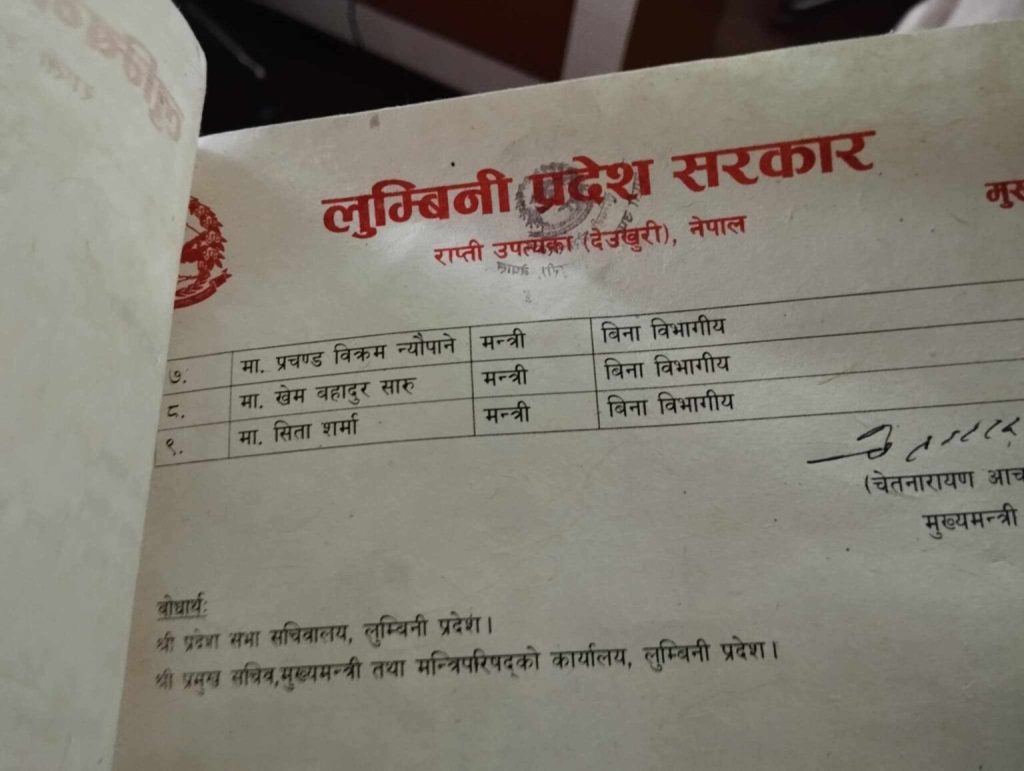 लुम्बिनी प्रदेश सरकार
राप्ती उपत्यका (देउखुरी), नेपाल
७. मा. प्रचण्ड विक्रम न्यौपाने मन्त्री बिना विभागीय
८. मा. खेम बहादुर सारु मन्त्री बिना विभागीय
९. मा. सिता शर्मा मन्त्री बिना विभागीय
(चेतनारायण
मुख्यमन्त्री
बोधार्थः
श्री प्रदेश सभा सचिवालय, लुम्बिनी प्रदेश।
श्री प्रमुख सचिव,मुख्यमन्त्री तथा मन्त्रिपरिषद्को कार्यालय, लुम्बिनी प्रदेश।